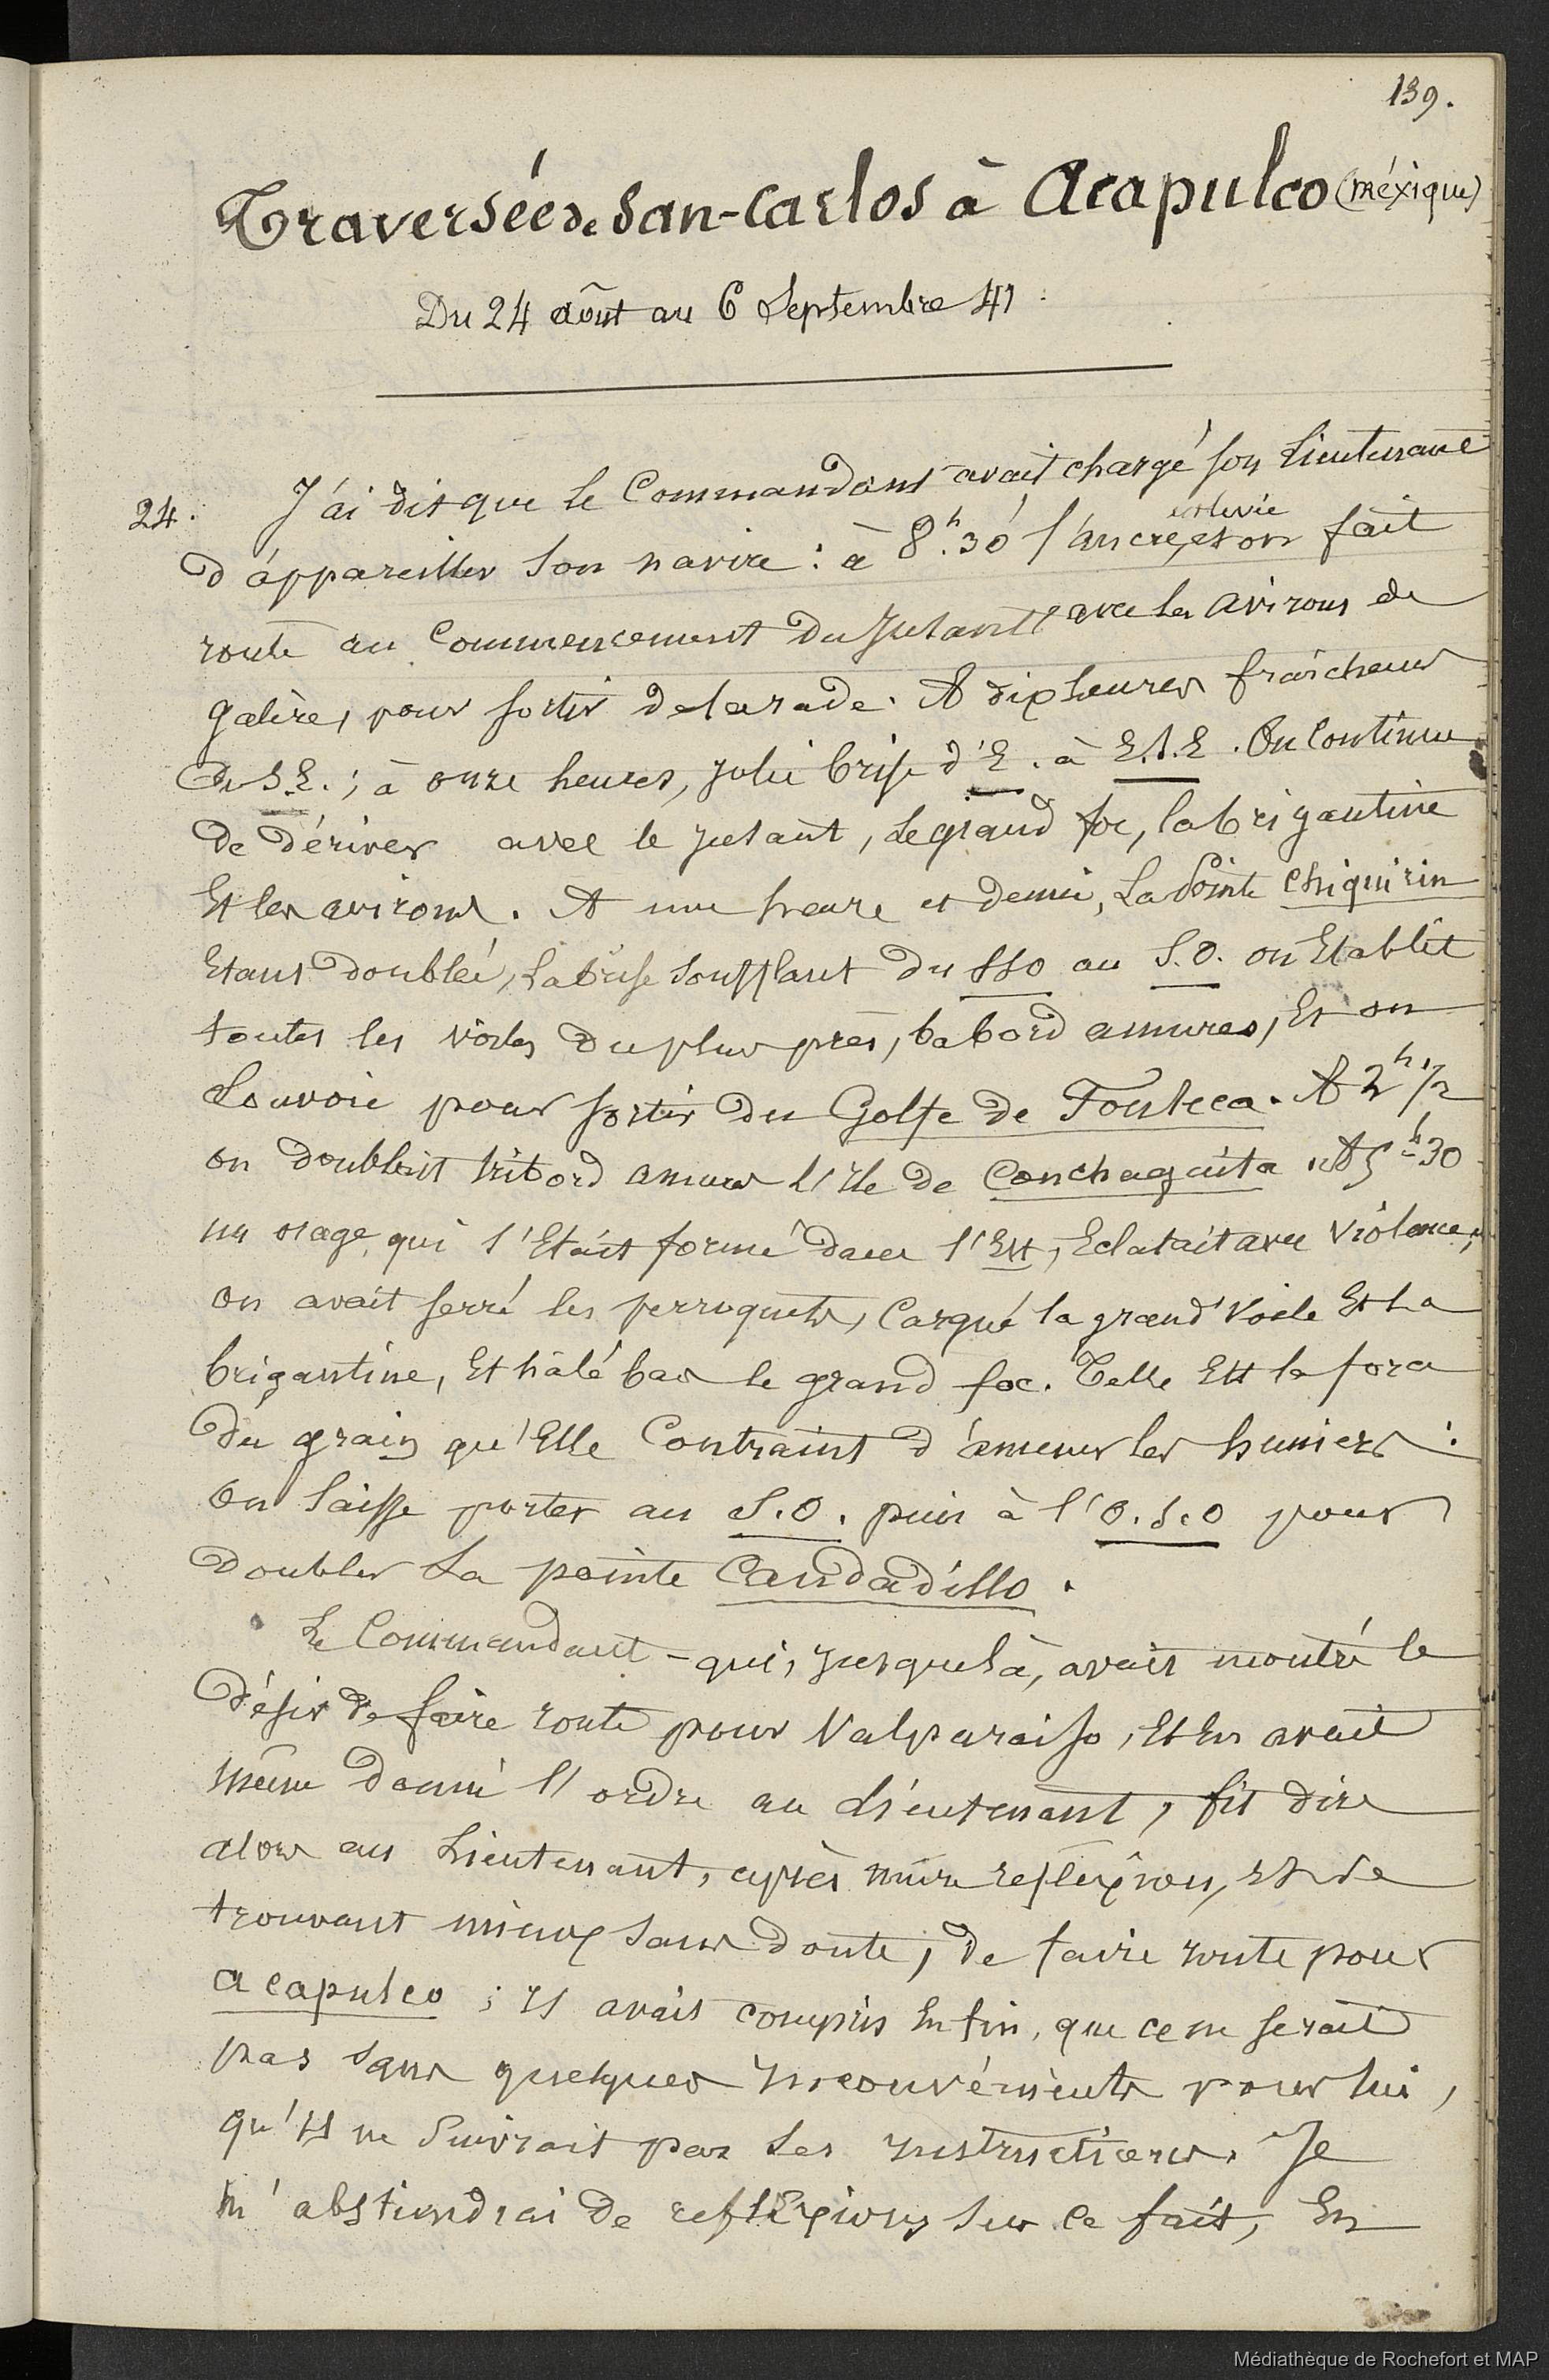 139.
Traversée de San-Carlos à Acapulco (méxique)
Du 24 août au 6 Septembre 41
24. J'ai dit que le Commandant avait chargé son Lieutenant
d'appareiller son navire : à 8.h 30' l'ancre est levée et on fait
route au Commencement du Jusant avec les avirons de
galère, pour sortir de la rade. A dix heures fraîcheur
du S.E. ; à onze heures, jolie brise d'E. à E.S.E. On Continue
de dériver avec le jusant, le grand foc, la brigantine
Et les avirons. A une heure et demie, La Pointe Chiquirin
Etant doublée, La brise Soufflant du SSO au S.O. on Etablit
toutes les voiles du plus près, babord amures, Et on
Louvoie pour sortir du Golfe de Fonseca. A 2h 1/2
on doublait tribord amures l'Ile de Conchaguita. A 5h 30
un orage qui s'Etait formé dans l'Est, Eclatait avec violence,
on avait serré les perroquets, Cargué la grand'voile Et La
brigantine, Et hâlé bas le grand foc. Telle Est la force
du grain qu'Elle Contraint d'amener les huniers :
on laisse porter au S.O. puis à l'O.S.O pour
doubler La pointe Candadillo.
Le Commandant - qui, jusque là, avait montré le
désir de faire route pour Valparaiso, Et En avait
même donné l'ordre au Lieutenant, fit dire
alors au Lieutenant, après mûre reflexion, et se
trouvant mieux sans doute, de faire route pour
acapulco ; Il avait compris Enfin, que ce ne serait
pas sans quelques Inconvénients pour lui,
qu'Il ne Suivrait pas Ses Instructions. Je
m'abstiendrai de reflexions sur ce fait, En
Médiathèque de Rochefort et MAP